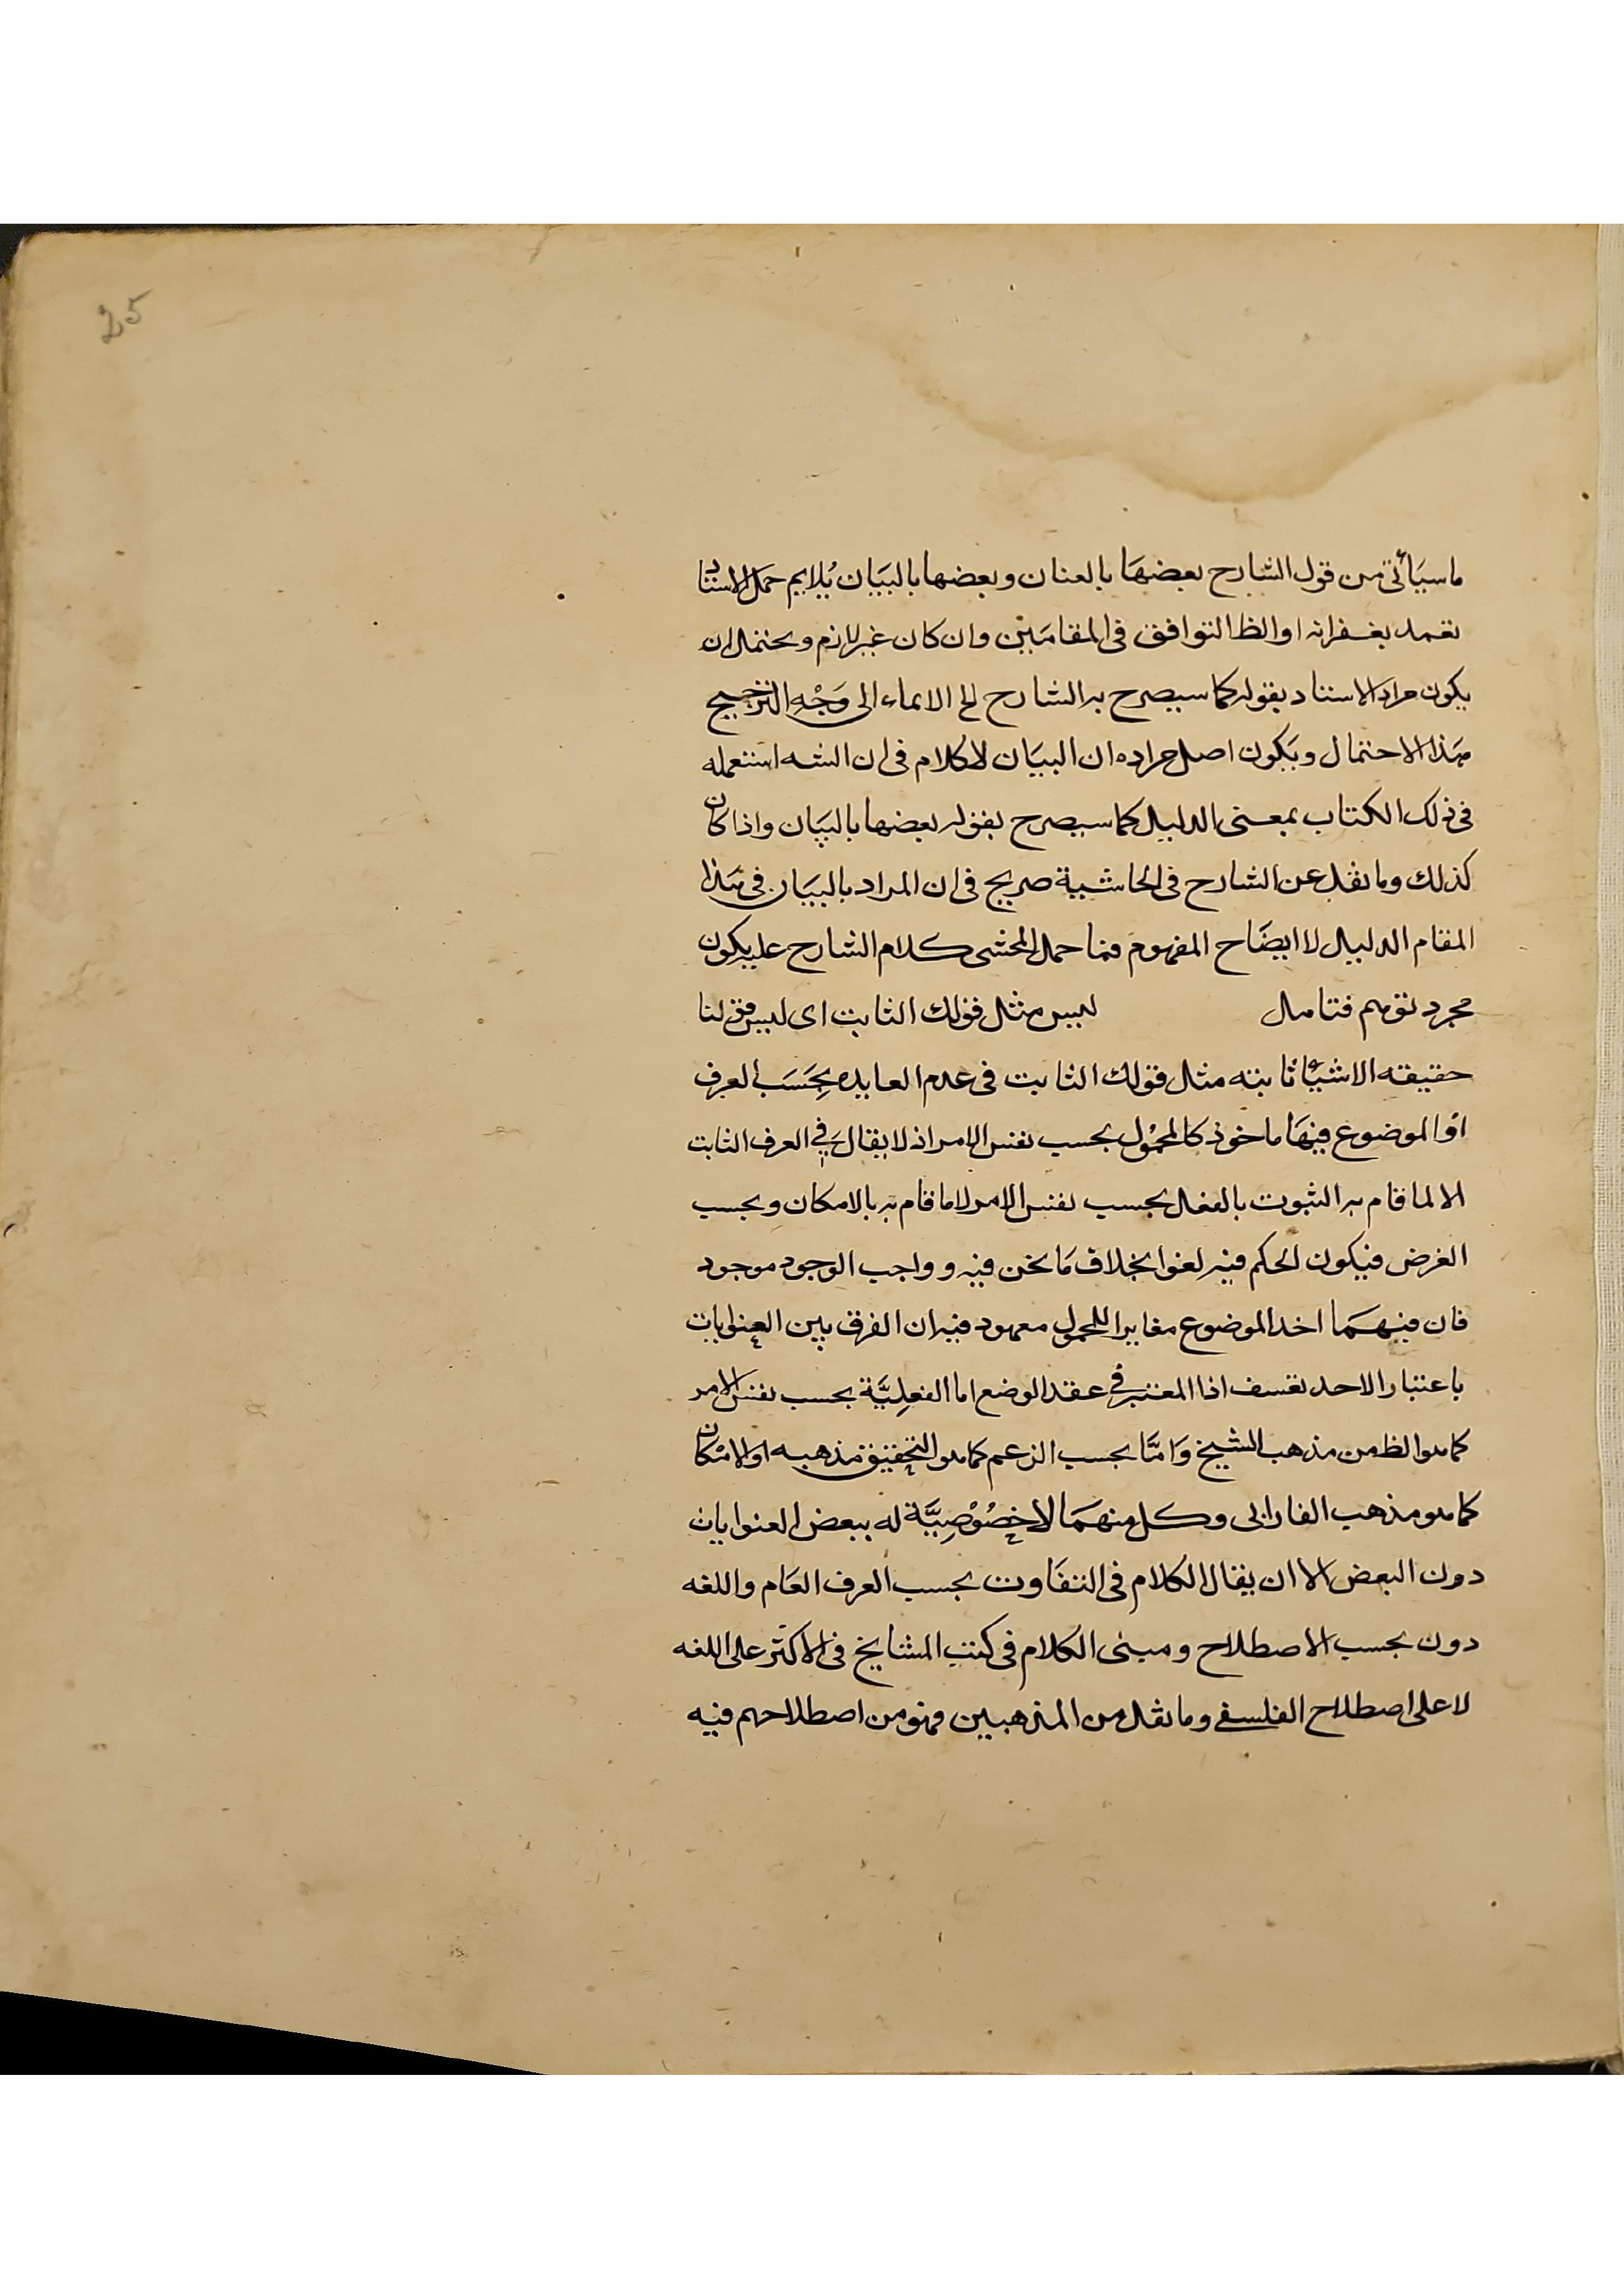 25
ماسيأتى من قول الشارح بعضها بالعنان وبعضها بالبيان يلايم حمل الاستاد
تغمد بغفرانه او الظ التوافق فى المقامين وان كان غير لازم ويحتمل ان
يكون مراد الاستاد بقوله كما سيصرح به الشارح الخ الايماء الى وجه الترجيح
هذا الاحتمال ويكون اصل مراده ان البيان لاكلام فى ان الشه استعمله
فى ذلك الكتاب بمعنى الدليل كما سيصرح بقوله بعضها بالبيان واذا كان
كذلك وما نقل عن الشارح فى الحاشية صريح فى ان المراد بالبيان فى هذا
المقام الدليل لا ايضاح المفهوم فما حمل المحشى كلام الشارح عليه يكون
مجرد توهم فتامل ليس مثل قولك الثابت اى ليس قولنا
حقيقه الاشياء ثابته مثل قولك الثابت فى عدم العايده بحسب العرف
او الموضوع فيها ماخوذ كالمحمول بحسب نفس الامر اذ لا يقال فى العرف الثابت
الا لما قام به الثبوت بالفعل بحسب نفس الامر لا ما قام به بالامكان وبحسب
الفرض فيكون الحكم فيه لغوا بخلاف ما نحن فيه وواجب الوجود موجود
فان فيهما اخد الموضوع مغايرا للمحمول معهود فيه ان الفرق بين العنوايات
باعتبار الاحد تعسف اذا المعتبر فى عقد الوضع اما الفعلية بحسب نفس الامر
كما هو الظ من مذهب الشيخ وامّا بحسب الزعم كما هو التحقيق مذهبه او الامكان
كما هو مذهب الفارابى وكل منهما لا خصوصيّة له ببعض العنوايات
دون البعض الا ان يقال الكلام فى التفاوت بحسب العرف العام واللغه
دون بحسب الاصطلاح ومبنى الكلام فى كتب المشايخ فى الاكثر على اللغه
لا على اصطلاح الفلسفى وما نقل من المذهبين فهو من اصطلاحهم فيه